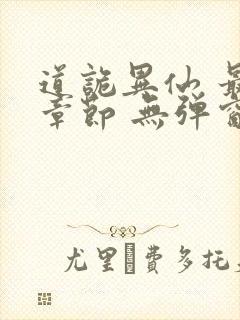 道詭異仙 最
章節 無彈窗
尤里�費多托